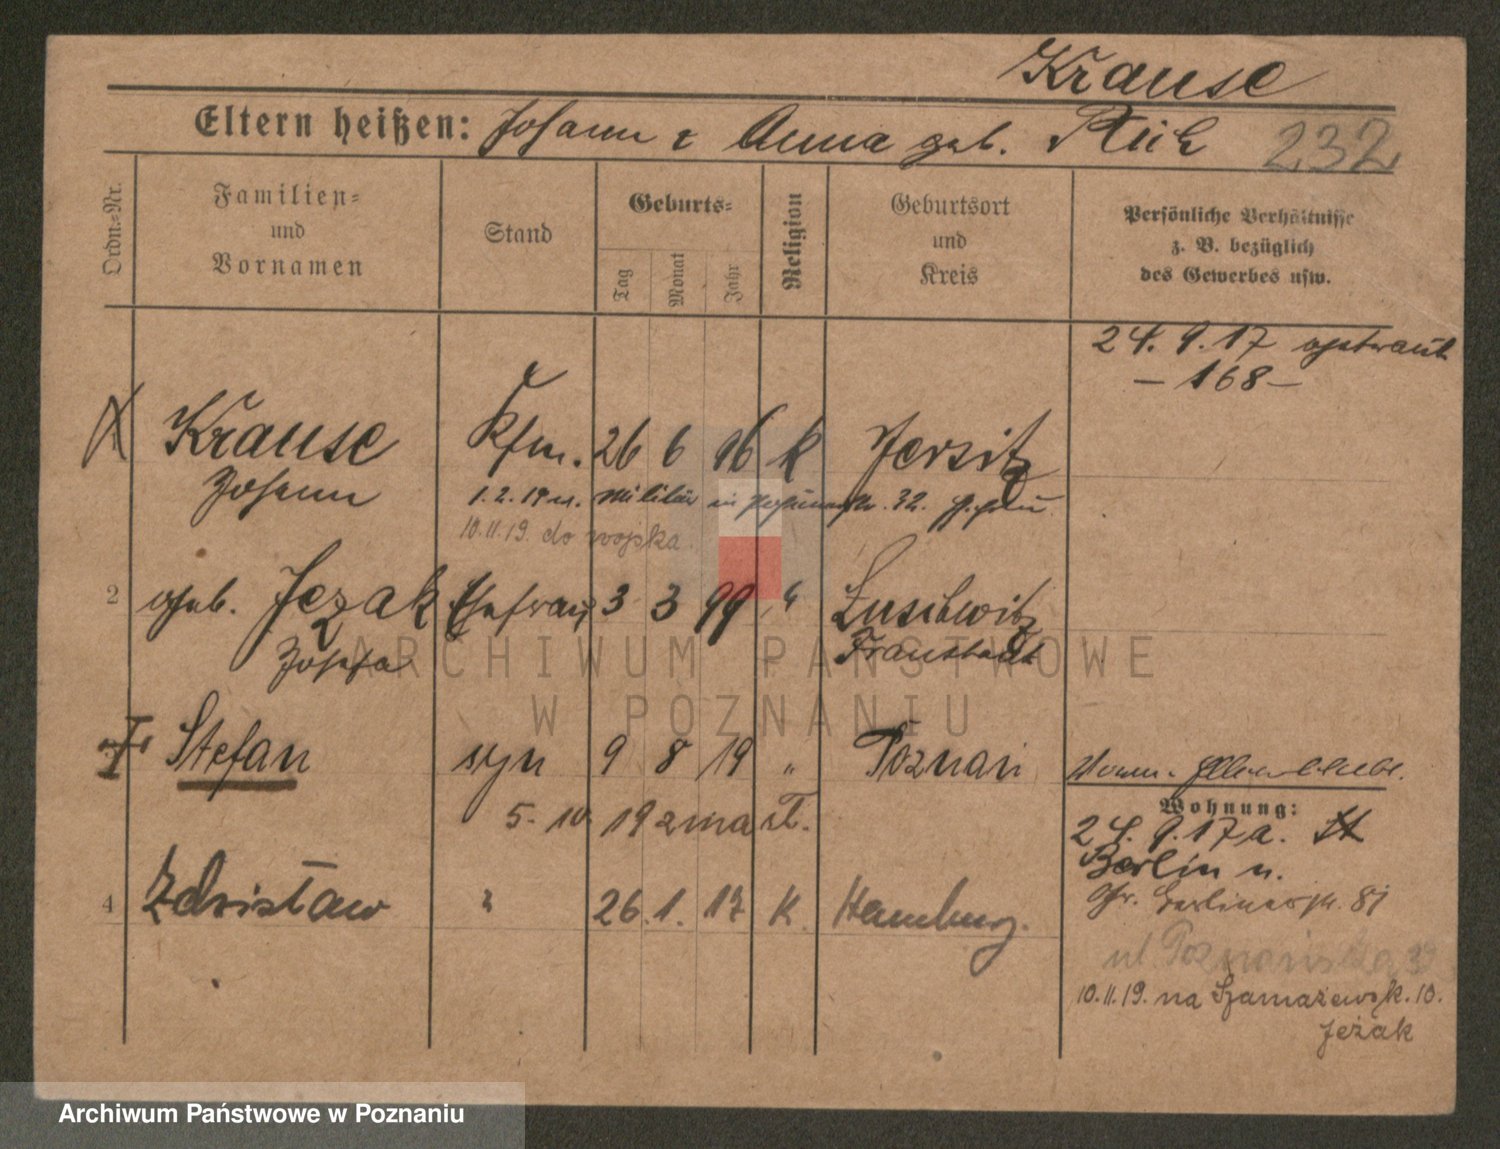 Krause
Eltern heißen: Johann & Anna geb. 232
Ordn.-Nr.
Familien- und Vornamen
Stand
Geburts-
Tag
Monat
Jahr
Religion
Geburtsort und Kreis
Persönliche Verhältnisse z. B. bezüglich des Gewerbes usw.
24.9.17 getraut
— 168 —
Krause Kfm. 26 6 96 k Jersitz
Johann
1.2.19 Militär in
10.11.19. do wojska.
2 geb. Jezak Ehefrau 3 3 99 " 
Zofia Fraustadt
Stefan syn 9 8 19 " Poznań
5. 10 19 zmarł.
4 Zdzisław " 26. 1. 17 K. Hamburg.
Wohnung:
24.9.17 a.
Berlin n.
Gr. Berlinerstr. 81
ul Poznańska
10.11.19. na Szamarzewsk. 10.
Jeżak
ARCHIWUM PAŃSTWOWE
W POZNANIU
Archiwum Państwowe w Poznaniu